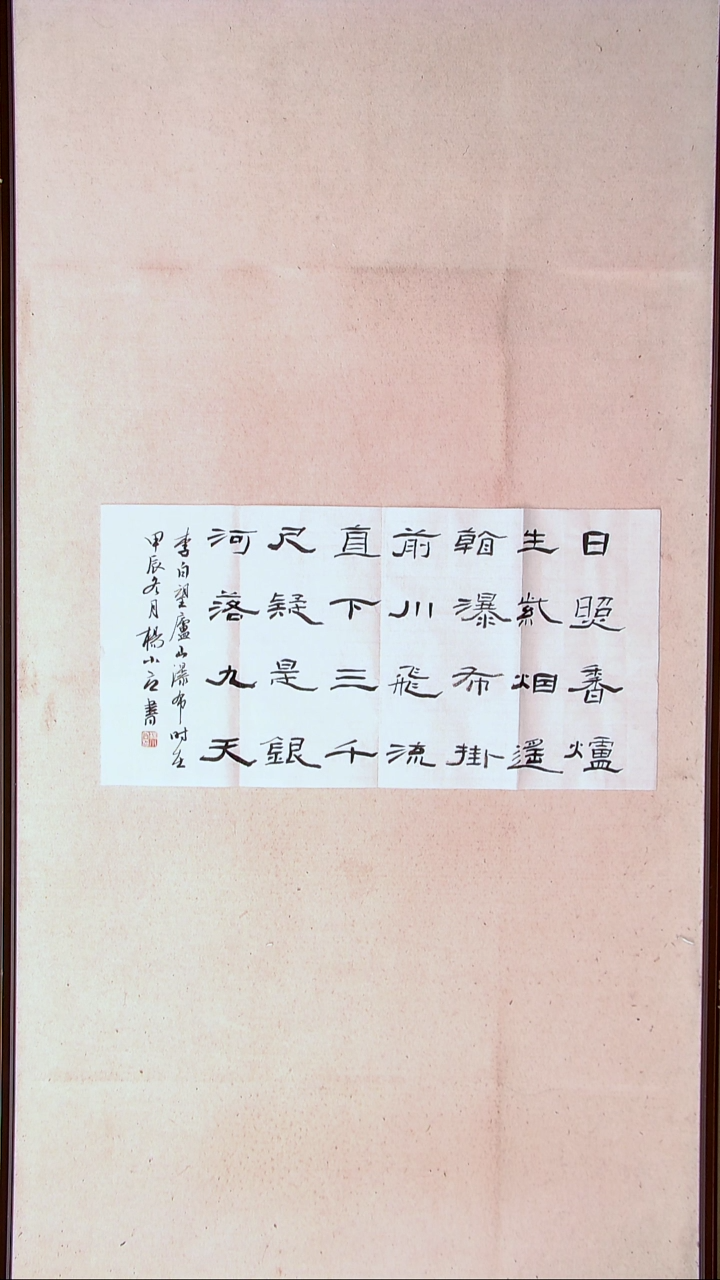 日照香爐
生紫烟遥
看瀑布掛
前川飛流
直下三千
尺疑是銀
河落九天
李白望廬山瀑布时在
甲辰冬月楊小書